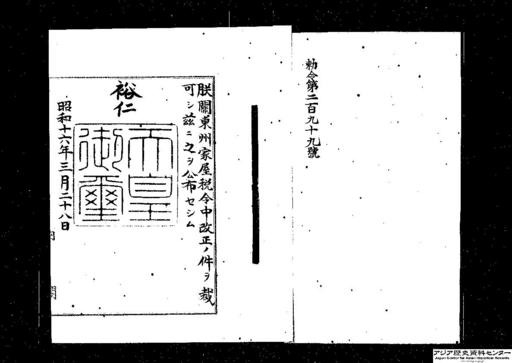 勅令第二百九十九號
朕關東州家屋税令中改正ノ件ヲ裁
可シ茲ニ之ヲ公布セシム
裕仁
天皇
御璽
昭和十六年三月二十八日
アジア歴史資料センター
Japan Center for Asian Historical Records